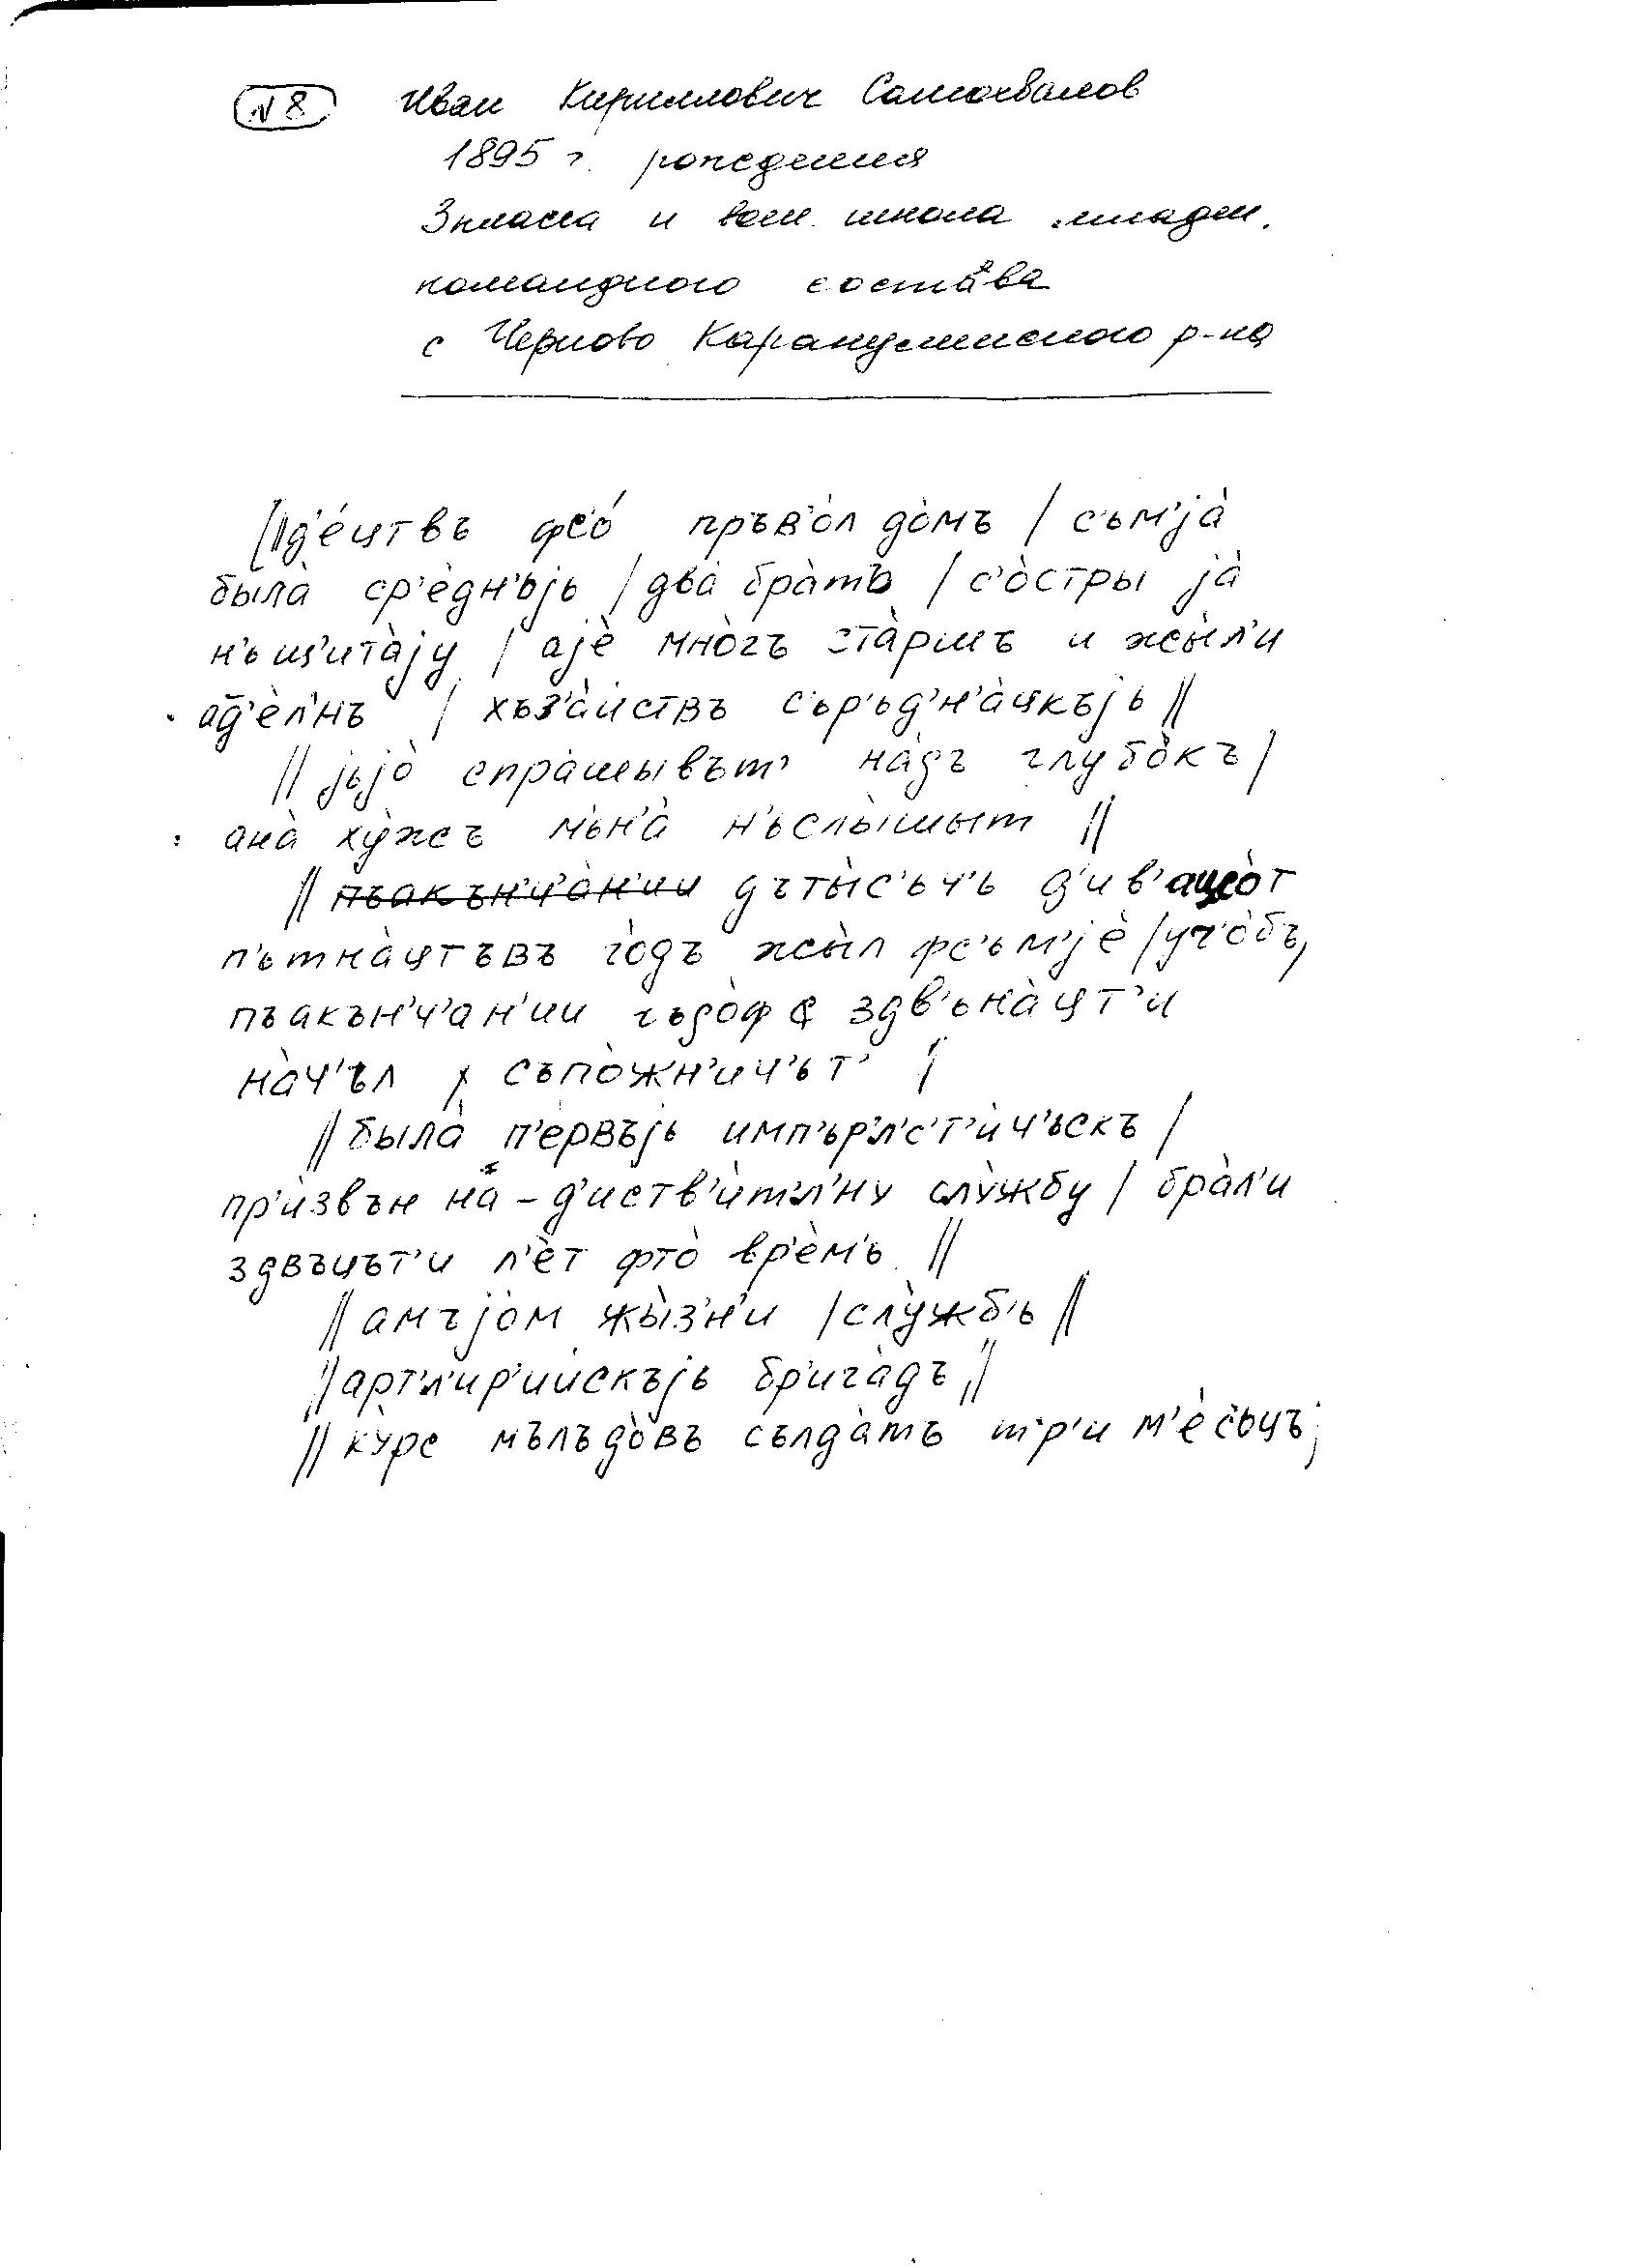 №8 Иван Кириллович Самохвалов
1895 г. рождения
3 класса и воен. школа младш.
командного состава
с Черново Карандеминского р-на
[‖д'е́цтвъ фс'о́ пръв'о̀л до̀мъ | с'ьм'jа̀
была̀ ср'ѐдн'ъjь | два̀ бра̀тъ | с'о̀стры jа̀
н'ь щ'ита̀jу | аjѐ мно̀гъ ста̀ршъ и жы̀л'и
ад'ѐл'нъ | хъз'а̀йствъ с'ьр'ьд'н'а̀цкъjь ‖
‖ jьjо̀ спра̀шывът' на̀дъ глубо̀къ |
ана̀ ху̀жъ м'ьн'а̀ н'ьслы̀шыт ‖
‖ пъакън'ч'а̀н'ии дъты̀с'ьч'ь д'ив'ацсо̀т
п'ьтна̀цтъвъ го̀дъ жы̀л фс'ьм'jѐ | уч'о̀бъ,
пъакън'ч'ан'ии гъдо̀ф с здв'ьна̀цт'и
на̀ч'ъл съпо̀жн'ич'ьт' |
‖ была̀ п'ервъjь имп'ьр'л'с'т'ѝч'ьскъ |
пр'ѝзвън на̀ – д'иств'ѝт'л'ну слу̀жбу | бра̀л'и
здвъцът'и л'ѐт фто̀ вр'ѐм'ь ‖
‖ амъjо̀м жы̀з'н'и | слу̀жб'ь ‖
‖ арт'л'ир'ийскъjь бр'ига̀дъ ‖
‖ ку̀рс мълъдо̀въ сълда̀тъ тр'и м'ѐсьцъ;